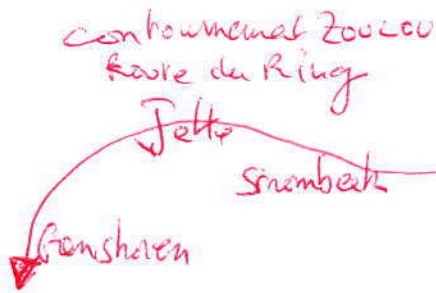 contournement ZOULOU
Route du Ring
Jette
Strombeek
Ganshoren